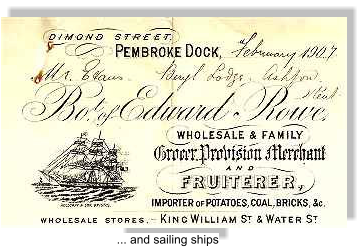 DIMOND STREET,
PEMBROKE DOCK, February 1907.
Mr. Evans. Lodge. Ashton,
Bot. of Edward Rowe,
WHOLESALE & FAMILY
Grocer, Provision Merchant
AND
FRUITERER,
IMPORTER OF POTATOES, COAL, BRICKS, &c.
WHOLESALE STORES,— KING WILLIAM ST & WATER ST
... and sailing ships